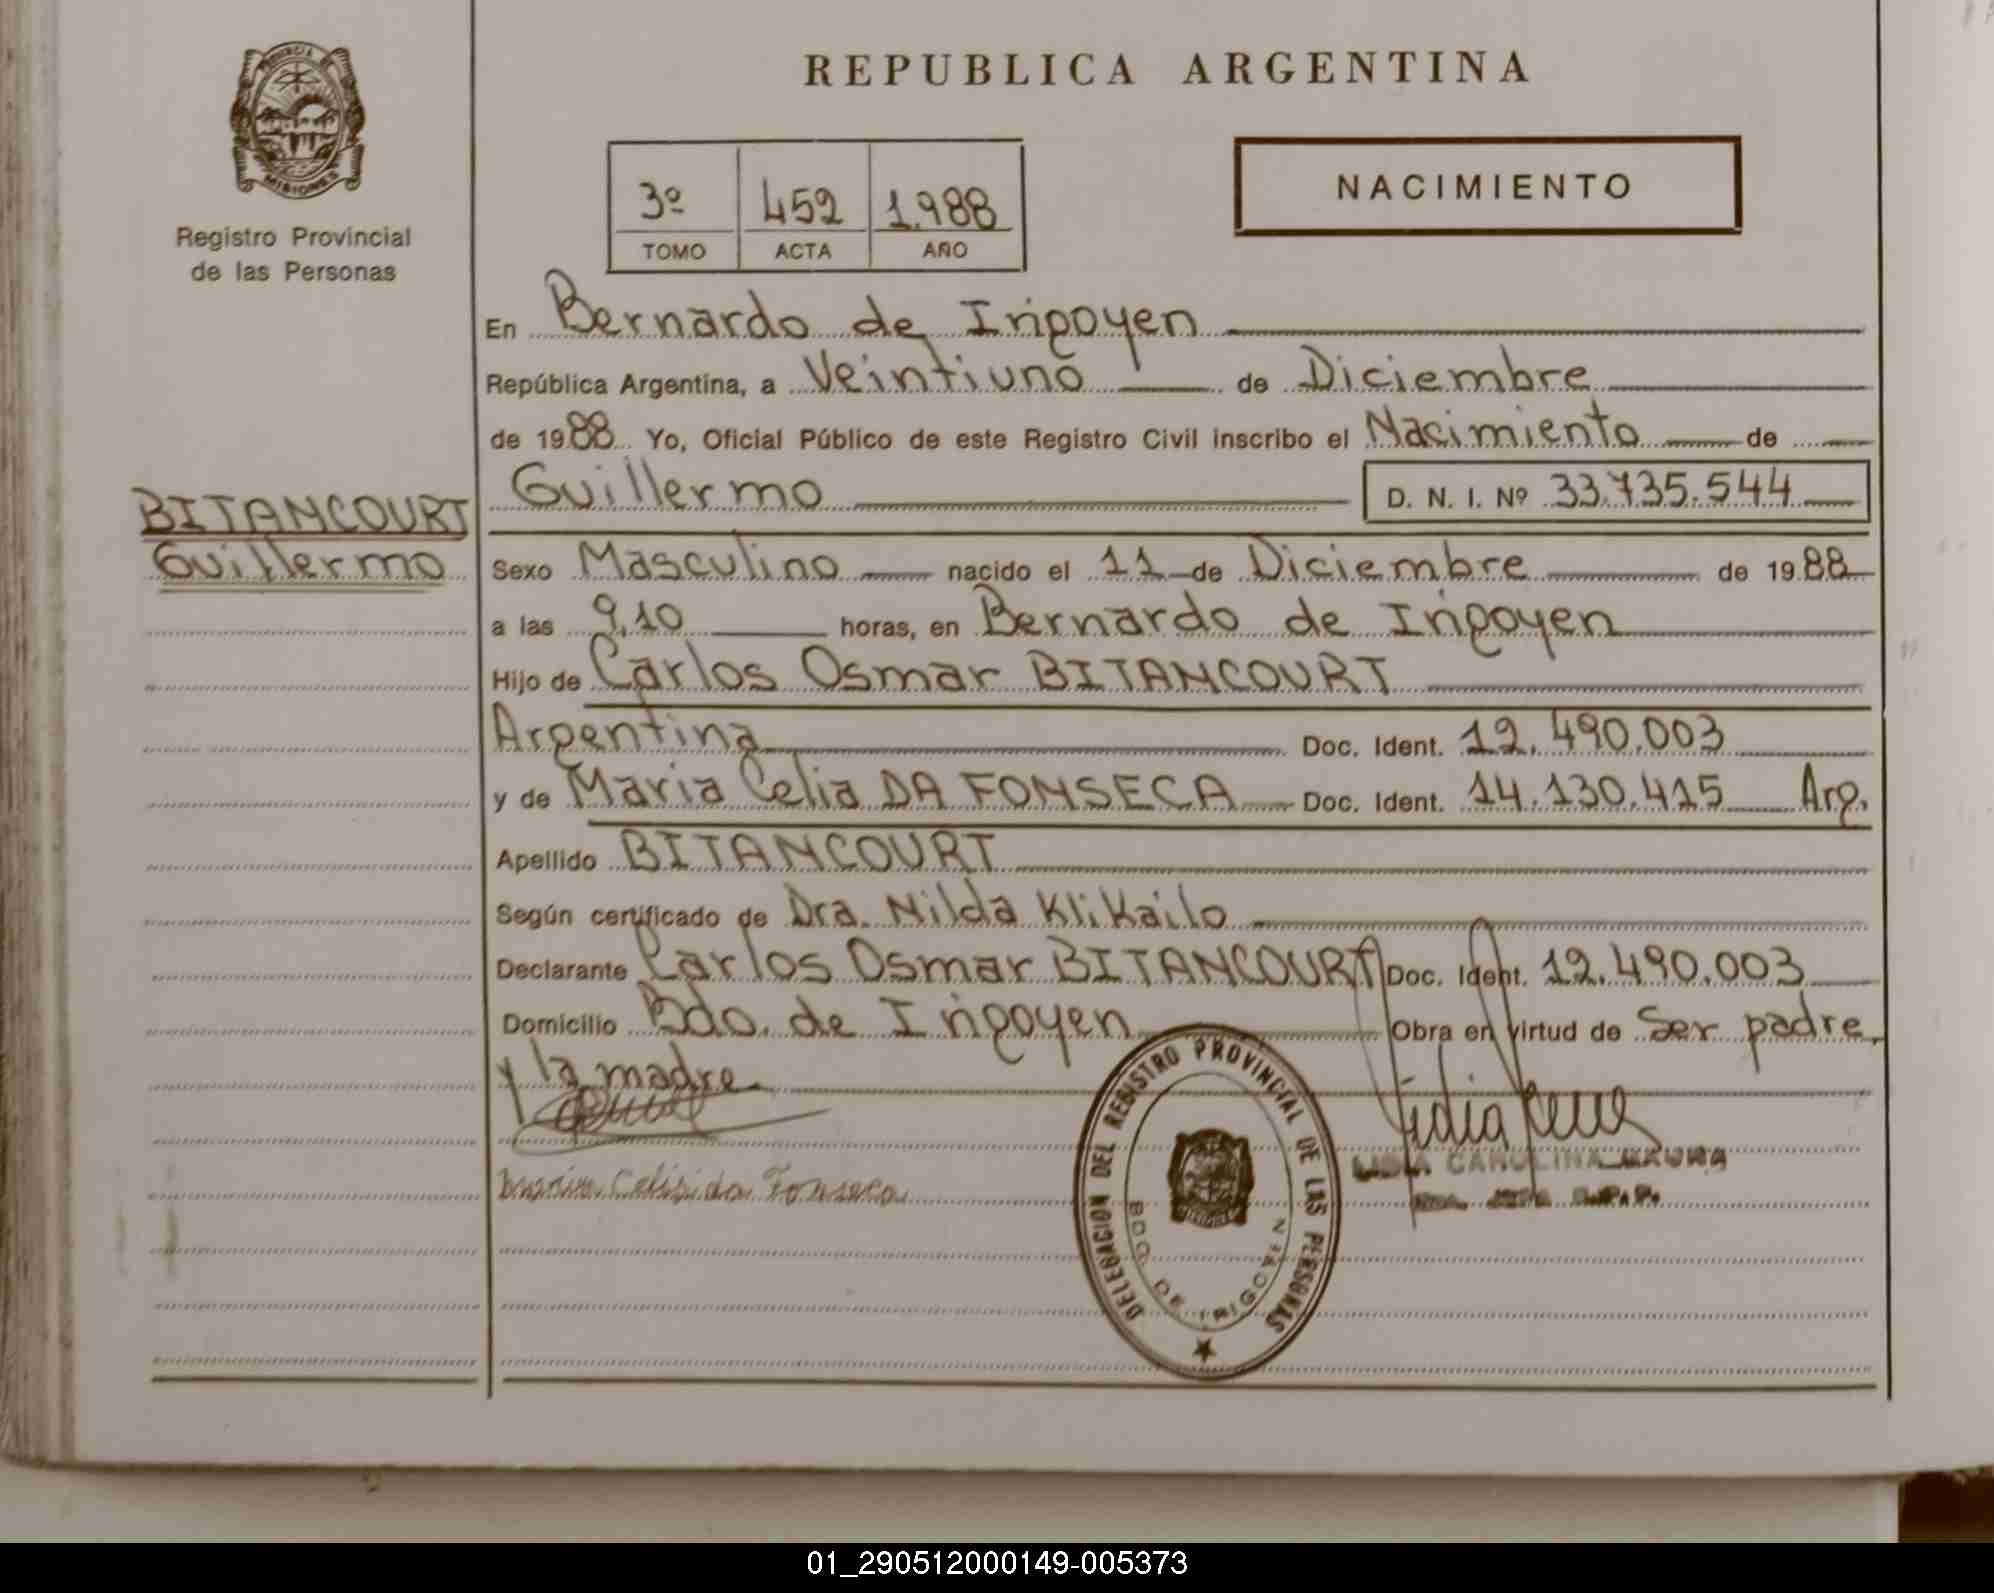 REPUBLICA ARGENTINA
PROVINCIA
MISIONES
Registro Provincial
de las Personas
3º 452 1.988
TOMO ACTA AÑO
NACIMIENTO
En Bernardo de Irigoyen
República Argentina, a Veintiuno de Diciembre
de 1988 Yo, Oficial Público de este Registro Civil inscribo el Nacimiento de
Guillermo D. N. I. Nº 33.735.544
BITANCOURT
Guillermo
Sexo Masculino nacido el 11 de Diciembre de 1988
a las 9,10 horas, en Bernardo de Irigoyen
Hijo de Carlos Osmar BITANCOURT
Argentina Doc. Ident. 12.490.003
y de Maria Celia DA FONSECA Doc. Ident. 14.130.415 Arg.
Apellido BITANCOURT
Según certificado de Dra. Nilda Klikailo
Declarante Carlos Osmar BITANCOURT Doc. Ident. 12.490.003
Domicilio Bdo. de Irigoyen Obra en virtud de Ser padre,
y la madre.
Fonseca
CAROLINA
DELEGACION DEL REGISTRO PROVINCIAL DE LAS PERSONAS
BDO. DE IRIGOYEN
01_290512000149-005373